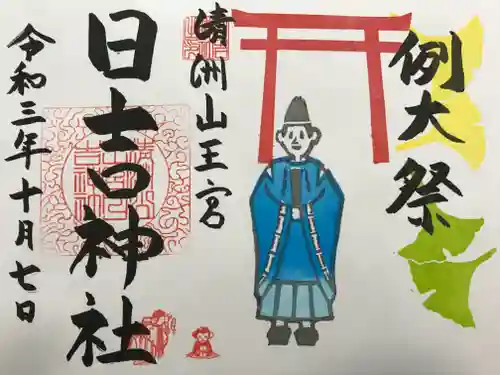 例大祭
清洲山王宮
日吉神社
令和三年十月七日